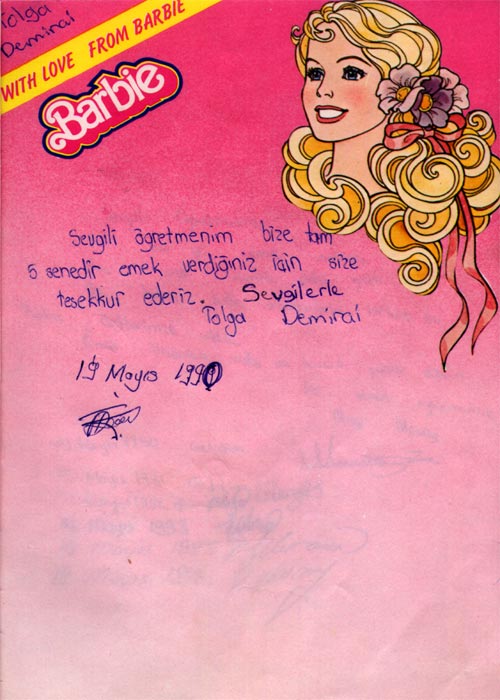 Tolga
Demiral
WITH LOVE FROM BARBIE
Barbie
Sevgili öğretmenim bize tam
5 senedir emek verdiğiniz için size
teşekkur ederiz. Sevgilerle
Tolga Demiral
19 Mayıs 1990